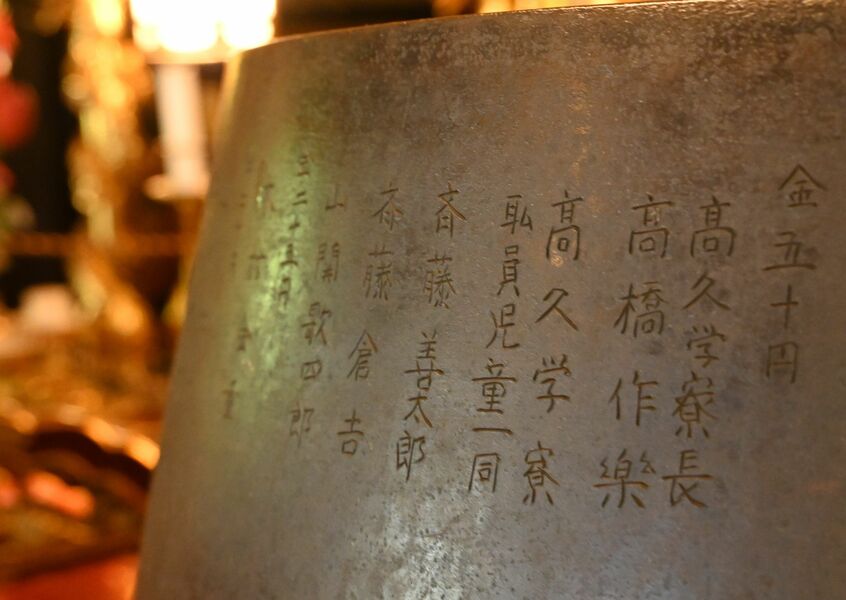 金五十円
高久学寮長
高橋作樂
高久学寮
職員児童一同
斉藤善太郎
斉藤倉吉
山開歌四郎
三二十五円